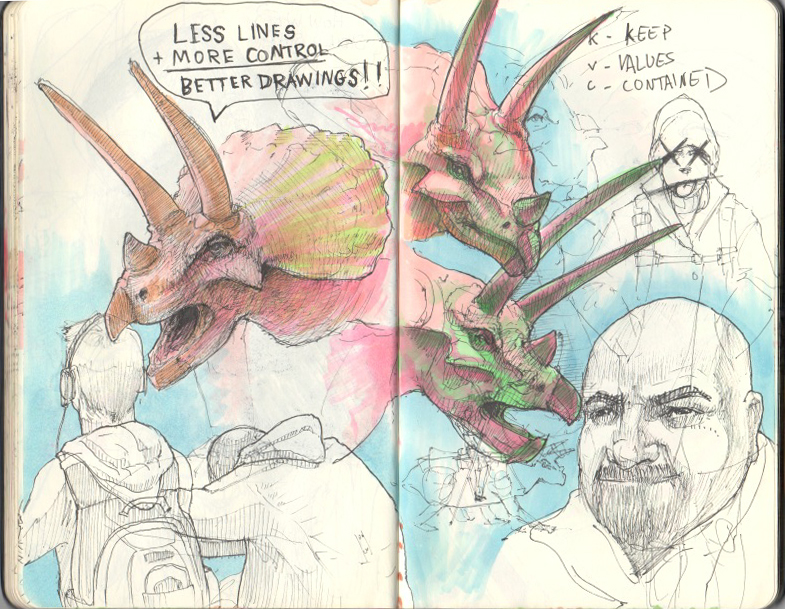 LESS LINES
+ MORE CONTROL
BETTER DRAWINGS!!
K - KEEP
V - VALUES
C - CONTAINED